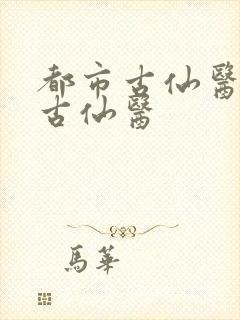 都市古仙醫
古仙醫
馬華